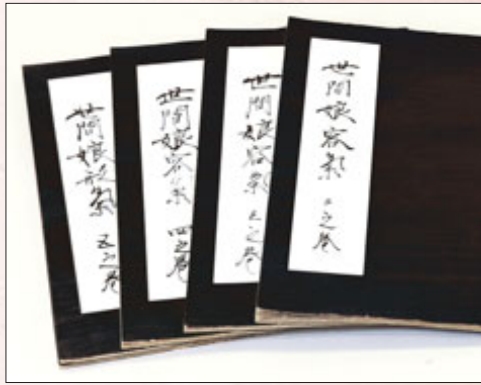 世間娘容氣 二之巻
世間娘容氣 三之巻
世間娘容氣 四之巻
世間娘容氣 五之巻